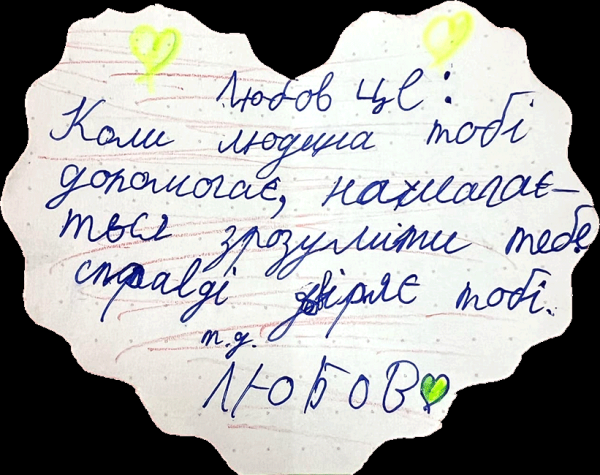 Любов це:
Коли людина тобі
допомогає, намагає-
ться зрозуміти тебе
справді звіряє тобі.
п.д.
ЛЮБОВ